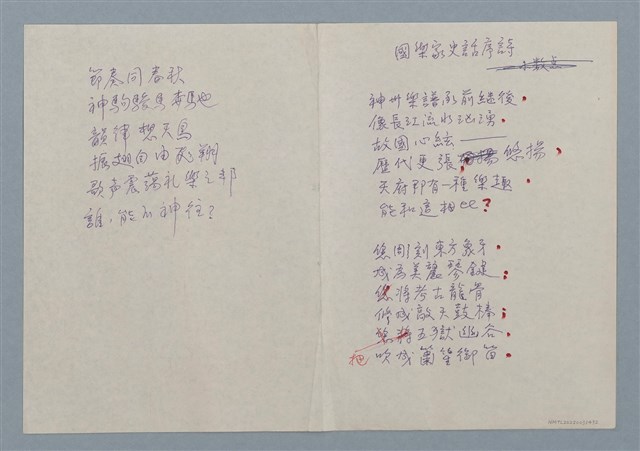 國樂家史話序詩
神州樂譜承前繼後，
像長江流水洶湧。
故國心結———
歷代更張，悠揚。
天府即有一種樂趣，
能和這相比？
您彫刻東方象牙，
成為美麗琴鍵；
將考古龍骨
修成敲天鼓棒；
把五獄幽谷，
吹成簫笙御笛。
節奏同春秋
神駒駿馬奔馳
韻律
振翅自由飛翔
歌声震蕩礼樂之邦
誰，能不神往？